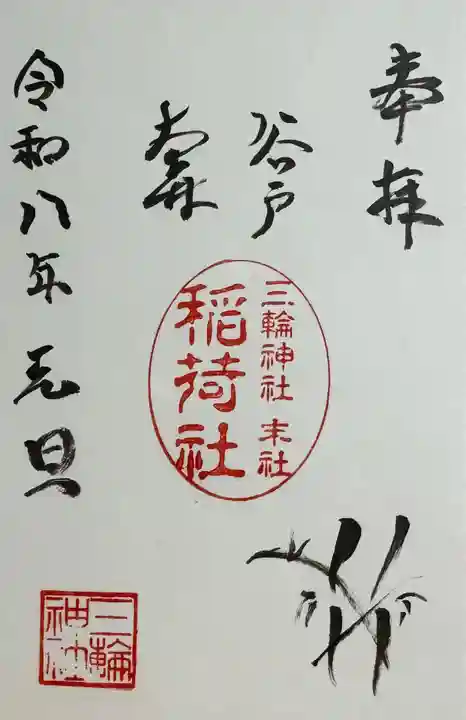 奉拝
谷戸
大森
三輪神社 末社
稲荷社
令和八年 元旦
三輪
神社